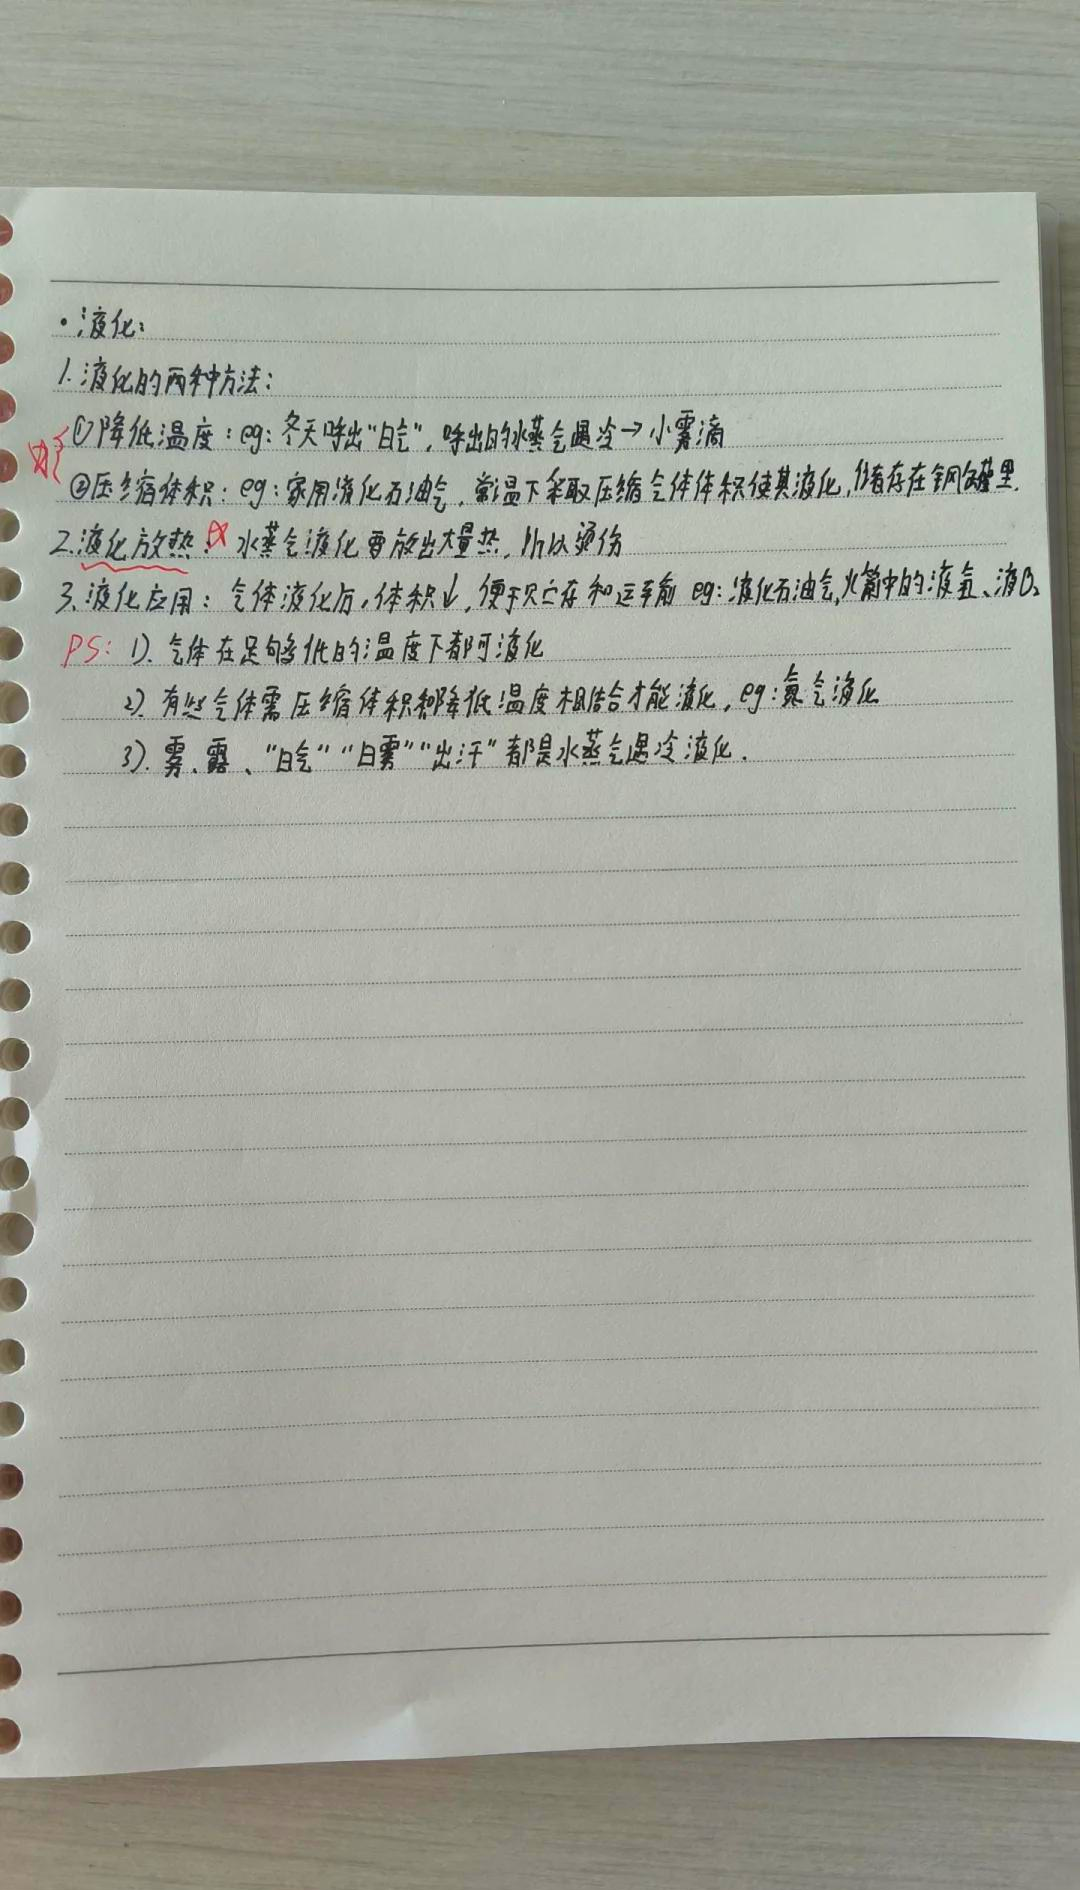 ·液化:
1.液化的两种方法:
①降低温度:eg:冬天呼出"白气",呼出的水蒸气遇冷→小雾滴
②压缩体积:eg:家用液化石油气,常温下采取压缩气体体积使其液化,储存在钢罐里.
2.液化放热:☆水蒸气液化要放出大量热,所以烫伤
3.液化应用:气体液化后,体积↓,便于贮存和运输 eg:液化石油气,火箭中的液氢、液O₂
PS: 1).气体在足够低的温度下都可液化
2).有些气体需压缩体积和降低温度相结合才能液化,eg:氮气液化
3).雾、露、"白气""白雾""出汗"都是水蒸气遇冷液化.